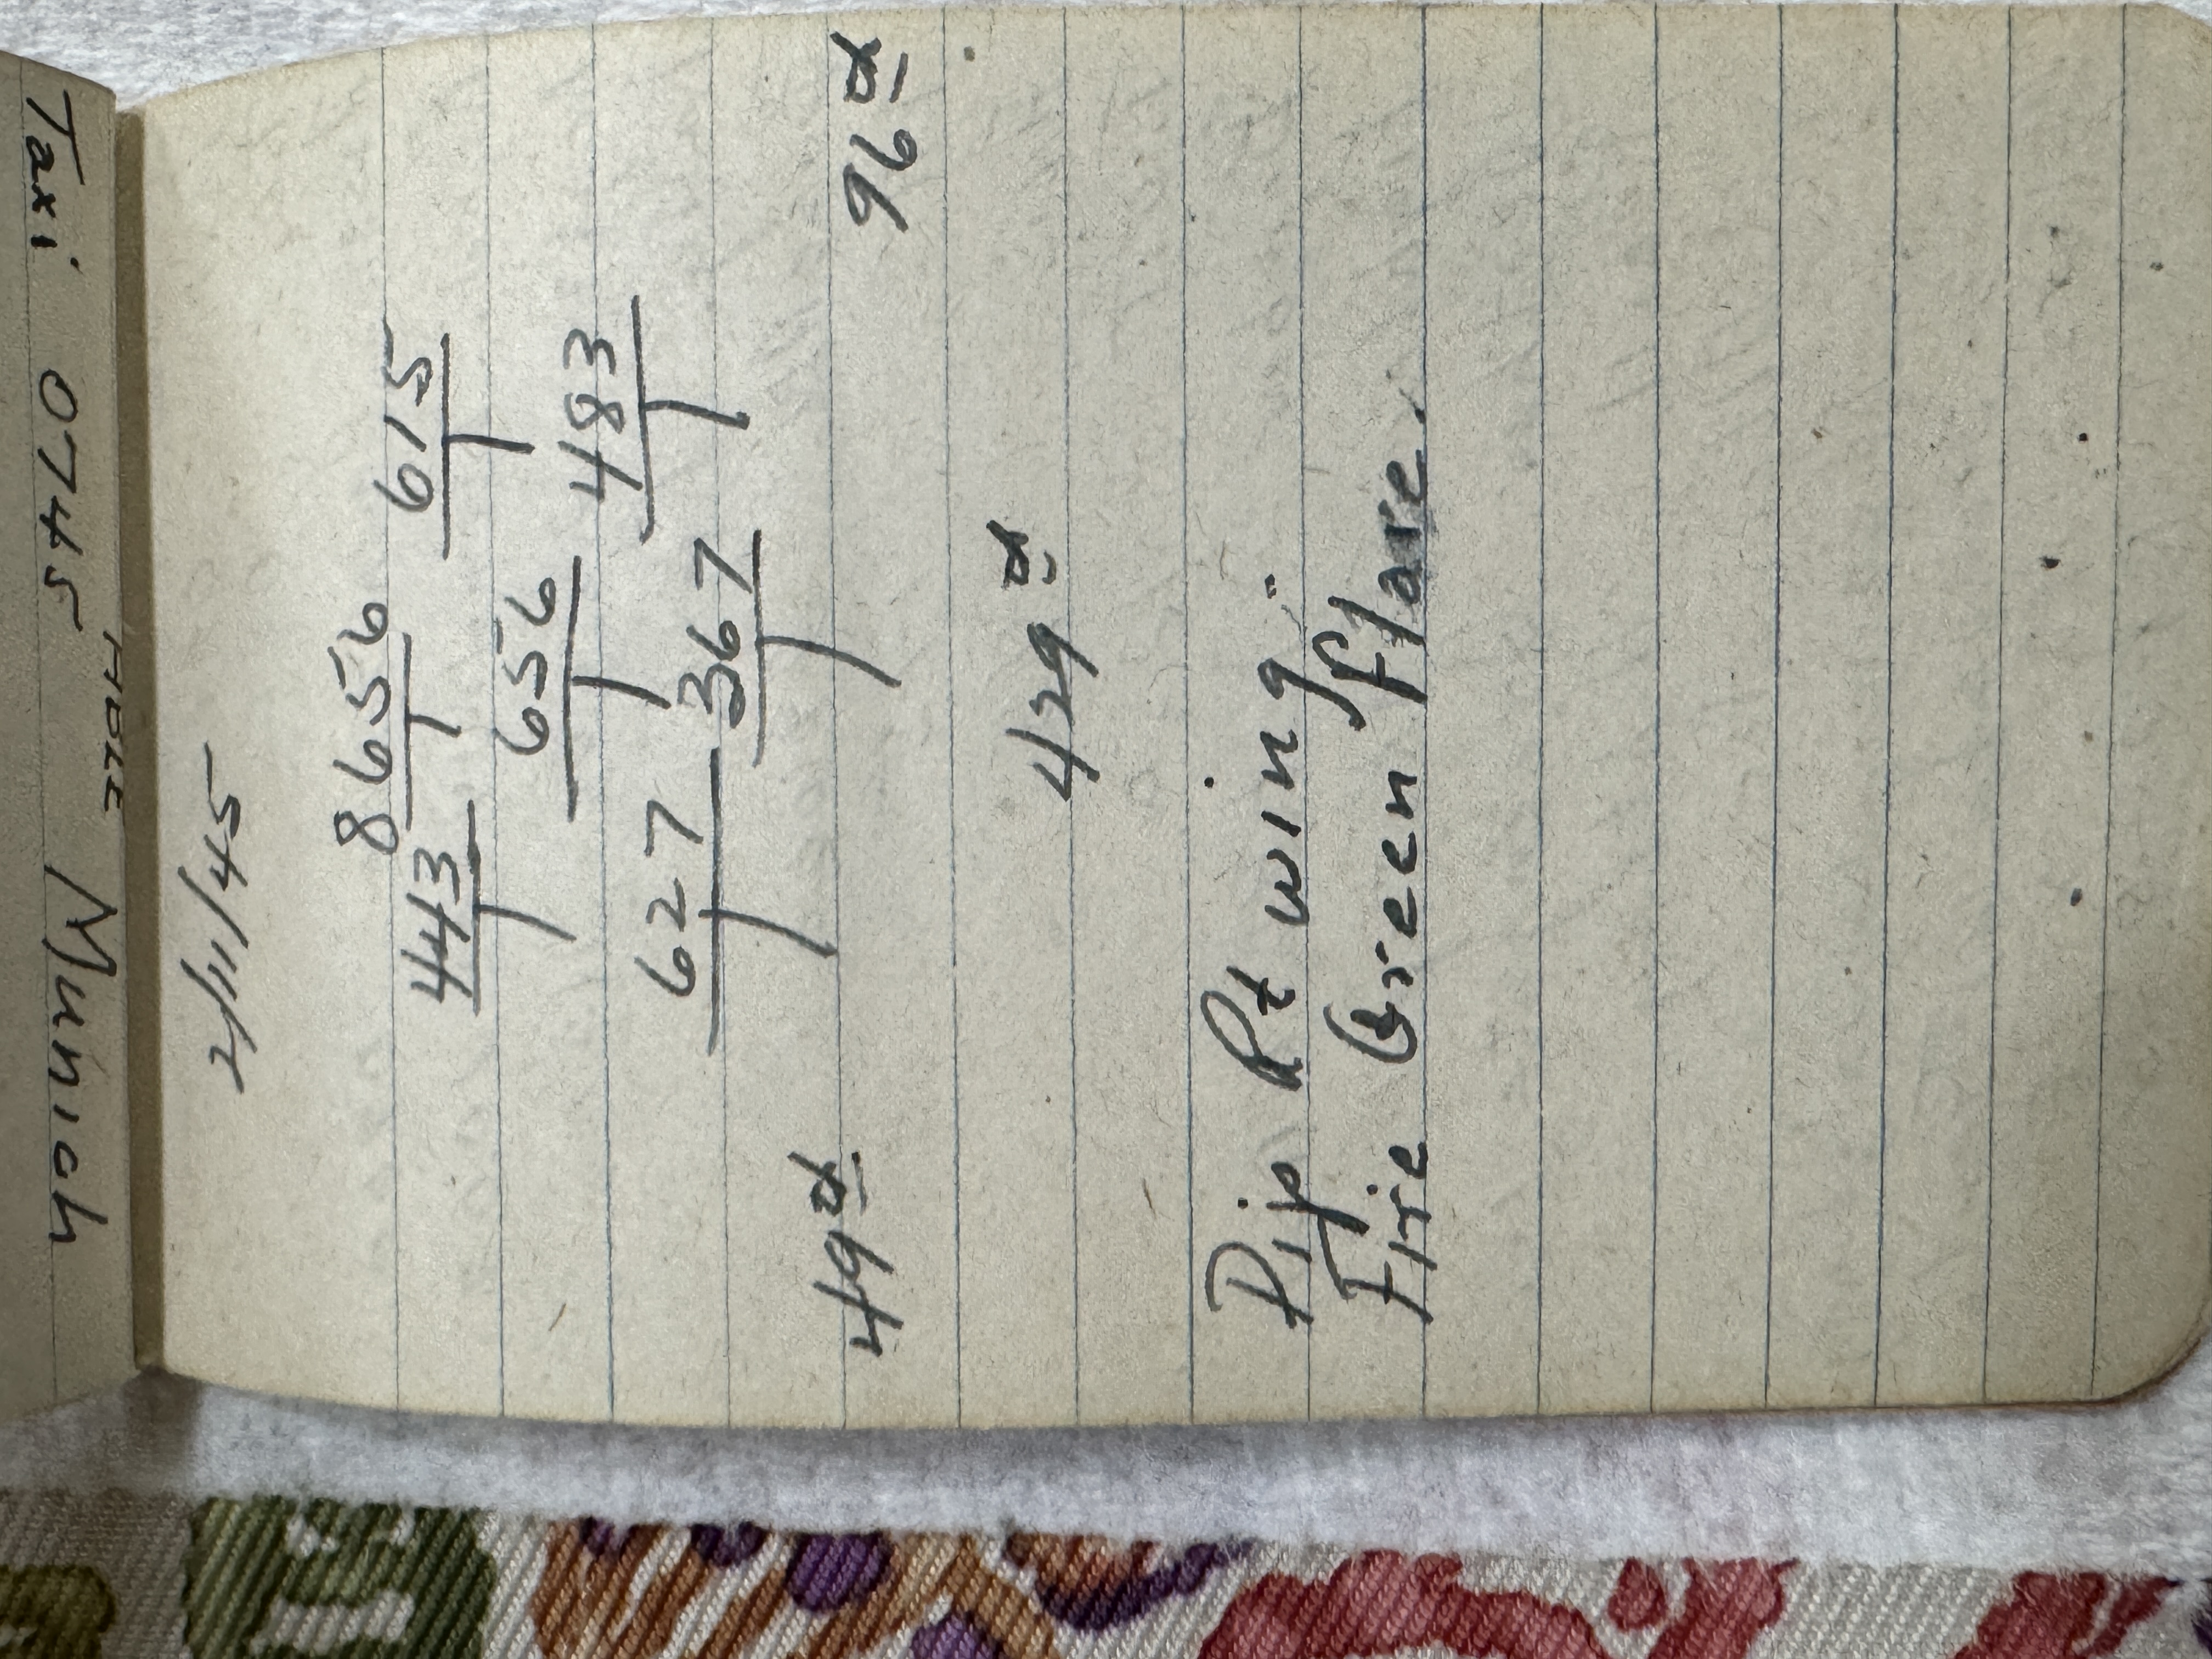 Taxi 0745 Munich
2/11/45
8656 615
443
656 483
627 367
49 96
429
Dip Rt wing.
Fire Green flare.